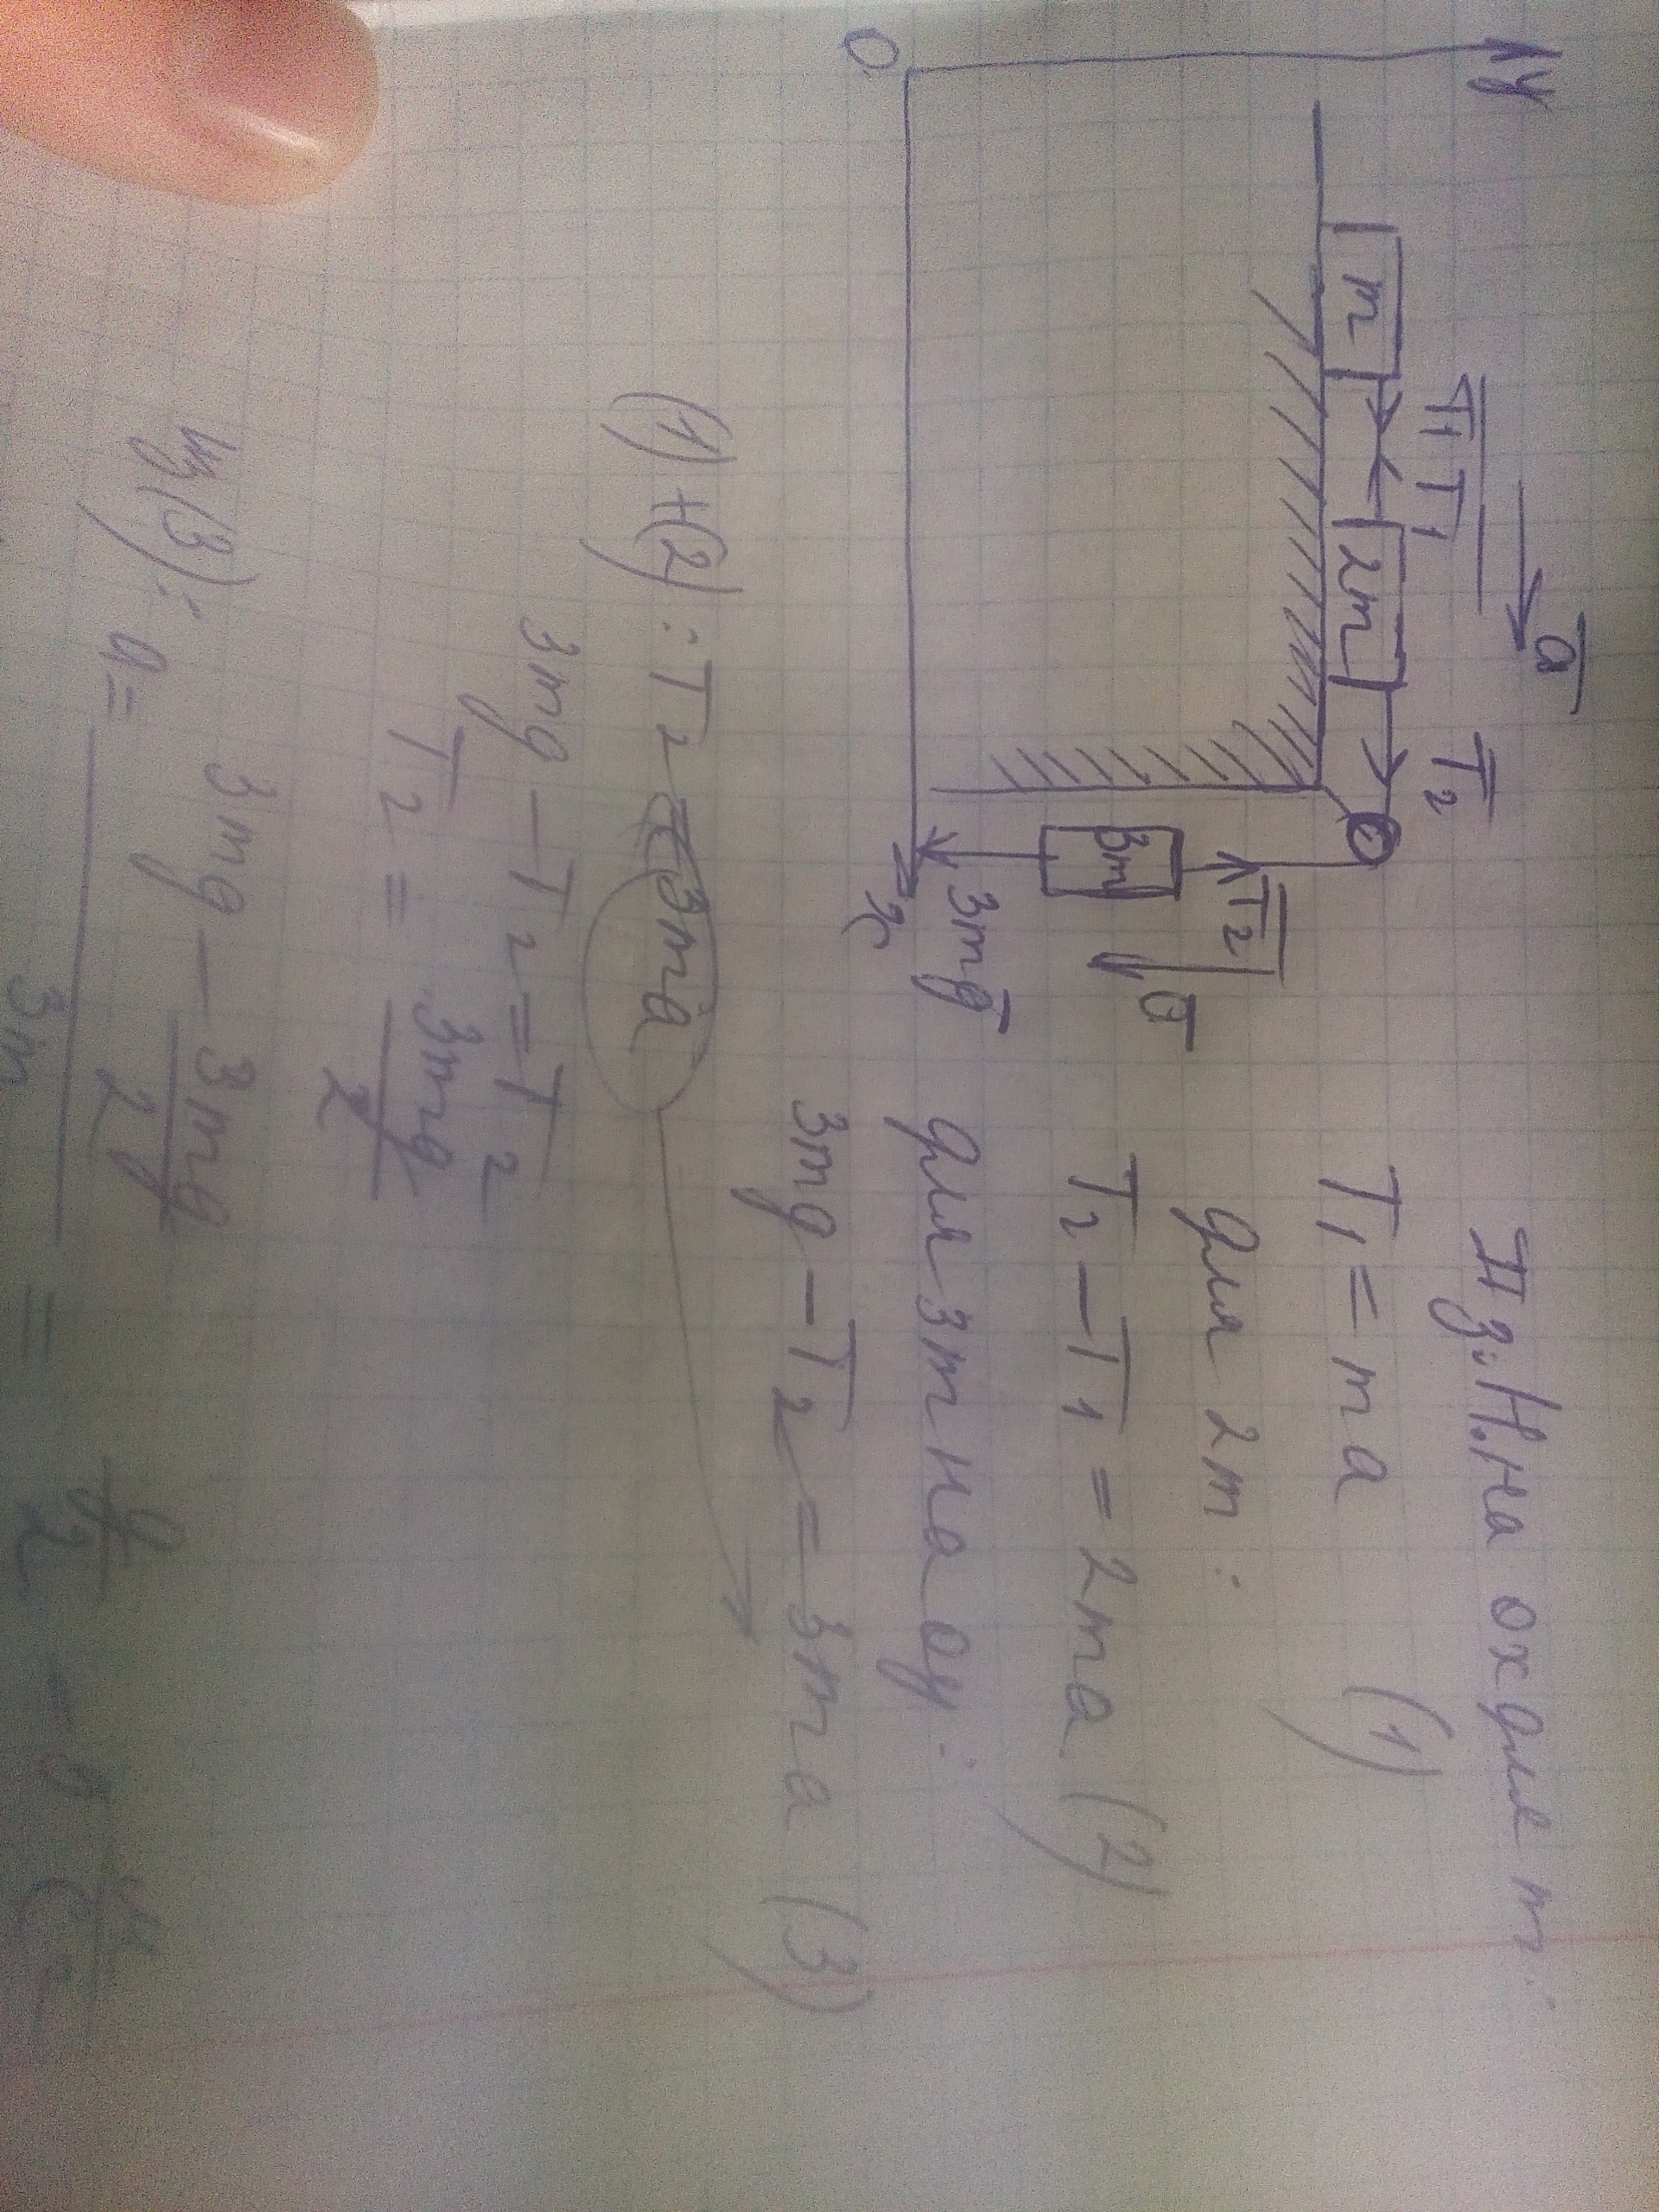 y
a̅
T̅₁ T̅₁ T̅₂
m 2m
T̅₂
3m a̅
3mg̅
0 x
II з. Н. на ох для m:
T₁ = ma (1)
для 2m:
T₂ − T₁ = 2ma (2)
для 3m на оу:
3mg − T₂ = 3ma (3)
(1)+(2): T₂ = 3ma
3mg − T₂ = T₂
T₂ = 3mg/2
Из (3): a = (3mg − 3mg/2)/3m = g/2